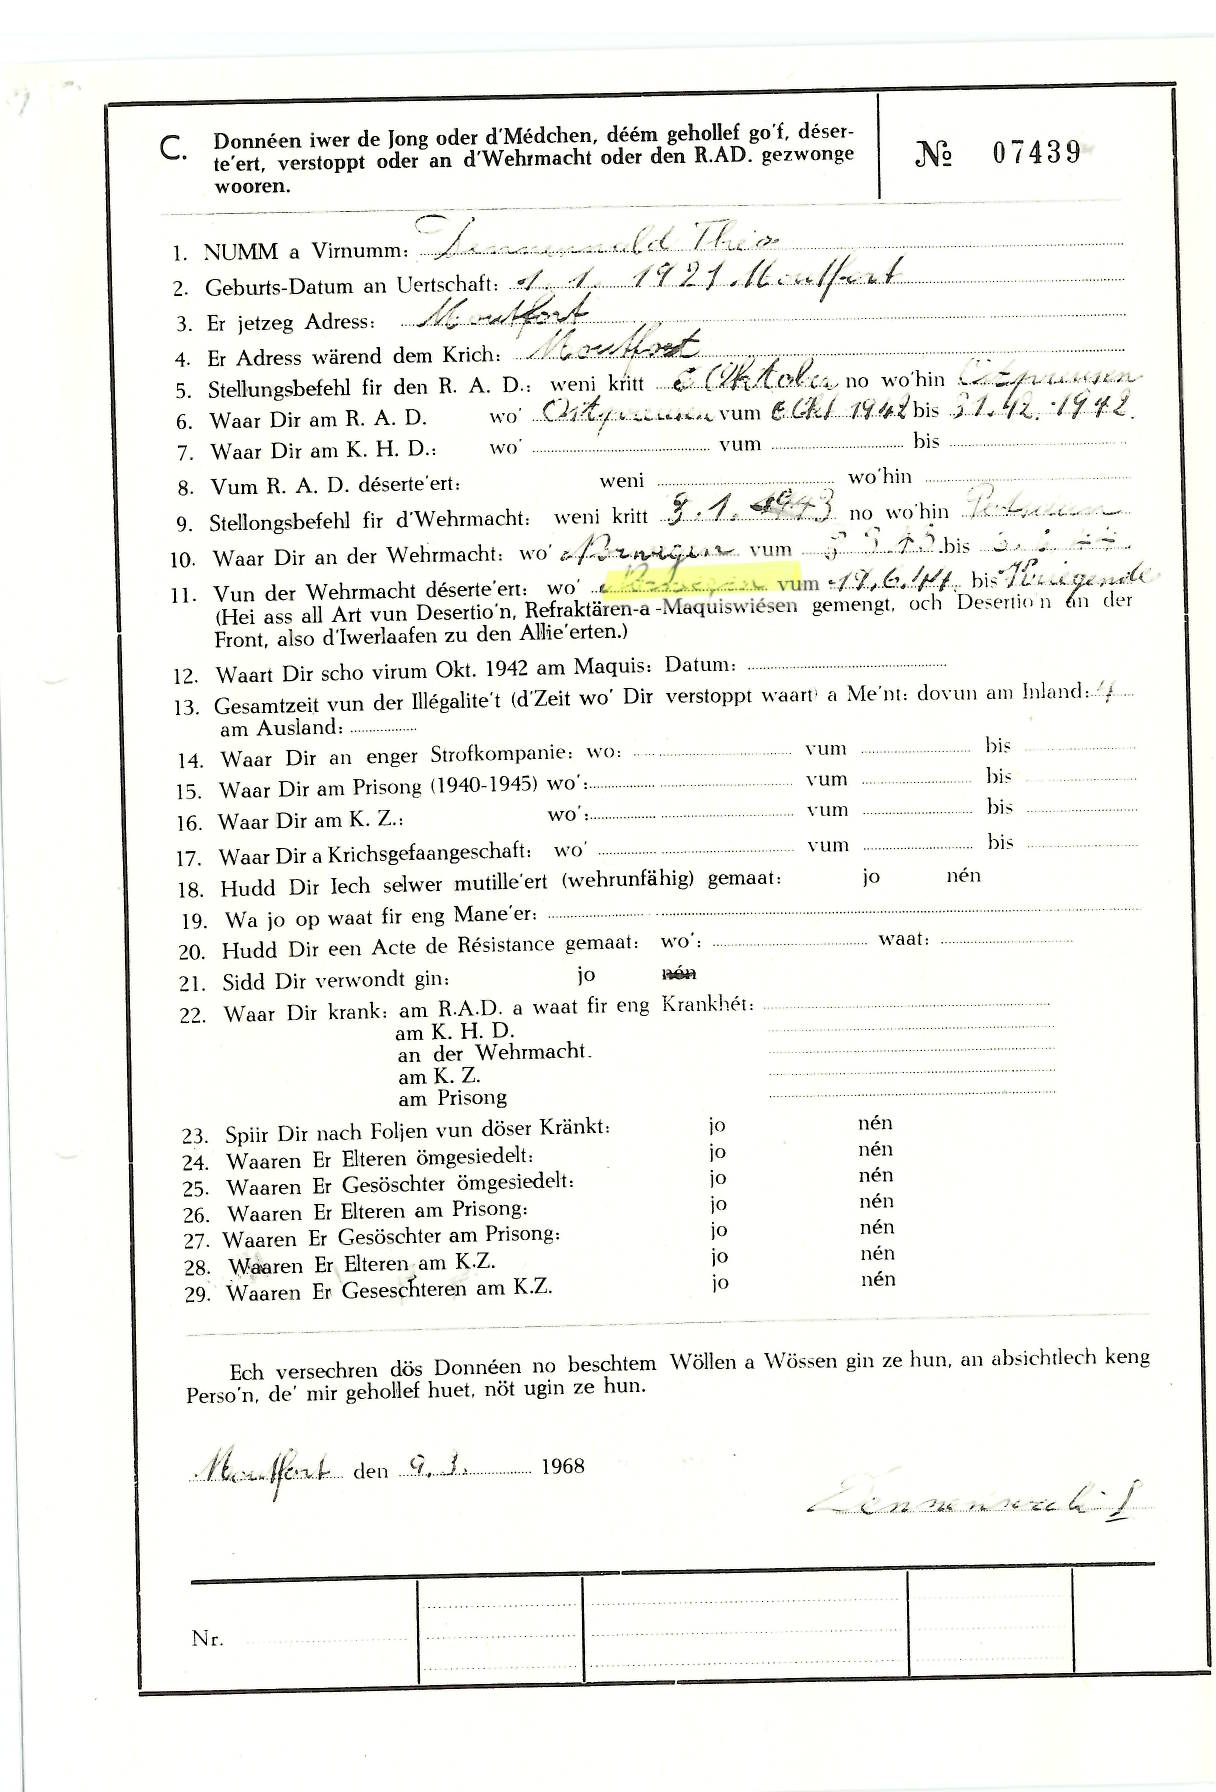 C. Donnéen iwer de Jong oder d'Médchen, déém gehollef go'f, déser-
te'ert, verstoppt oder an d'Wehrmacht oder den R.AD. gezwonge
wooren.
№ 07439
1. NUMM a Virnumm: Théo
2. Geburts-Datum an Uertschaft: 1. 1. 1921. Moutfort
3. Er jetzeg Adress: Moutfort
4. Er Adress wärend dem Krich: Moutfort
5. Stellungsbefehl fir den R. A. D.: weni kritt 6 Oktober no wo'hin Ostpreusen
6. Waar Dir am R. A. D. wo' Ostpreusen vum 6 Okt 1942 bis 31.12.1942.
7. Waar Dir am K. H. D.: wo' vum bis
8. Vum R. A. D. déserte'ert: weni wo'hin
9. Stellongsbefehl fir d'Wehrmacht: weni kritt 1. 1943 no wo'hin
10. Waar Dir an der Wehrmacht: wo' vum bis
11. Vun der Wehrmacht déserte'ert: wo' vum 19.6.44. bis Kriegende
(Hei ass all Art vun Desertio'n, Refraktären-a-Maquiswiésen gemengt, och Desertio'n an der
Front, also d'Iwerlaafen zu den Allie'erten.)
12. Waart Dir scho virum Okt. 1942 am Maquis: Datum:
13. Gesamtzeit vun der Illégalite't (d'Zeit wo' Dir verstoppt waart) a Me'nt: dovun am Inland:
am Ausland:
14. Waar Dir an enger Strofkompanie: wo: vum bis
15. Waar Dir am Prisong (1940-1945) wo': vum bis
16. Waar Dir am K. Z.: wo': vum bis
17. Waar Dir a Krichsgefaangeschaft: wo' vum bis
18. Hudd Dir Iech selwer mutille'ert (wehrunfähig) gemaat: jo nén
19. Wa jo op waat fir eng Mane'er:
20. Hudd Dir een Acte de Résistance gemaat: wo': waat:
21. Sidd Dir verwondt gin: jo nén
22. Waar Dir krank: am R.A.D. a waat fir eng Krankhét:
am K. H. D.
an der Wehrmacht.
am K. Z.
am Prisong
23. Spiir Dir nach Foljen vun döser Kränkt: jo nén
24. Waaren Er Elteren ömgesiedelt: jo nén
25. Waaren Er Gesöschter ömgesiedelt: jo nén
26. Waaren Er Elteren am Prisong: jo nén
27. Waaren Er Gesöschter am Prisong: jo nén
28. Waaren Er Elteren am K.Z. jo nén
29. Waaren Er Geseschteren am K.Z. jo nén
Ech versechren dös Donnéen no beschtem Wöllen a Wössen gin ze hun, an absichtlech keng
Perso'n, de' mir gehollef huet, nöt ugin ze hun.
Moutfort den 9. 3. 1968
Nr.